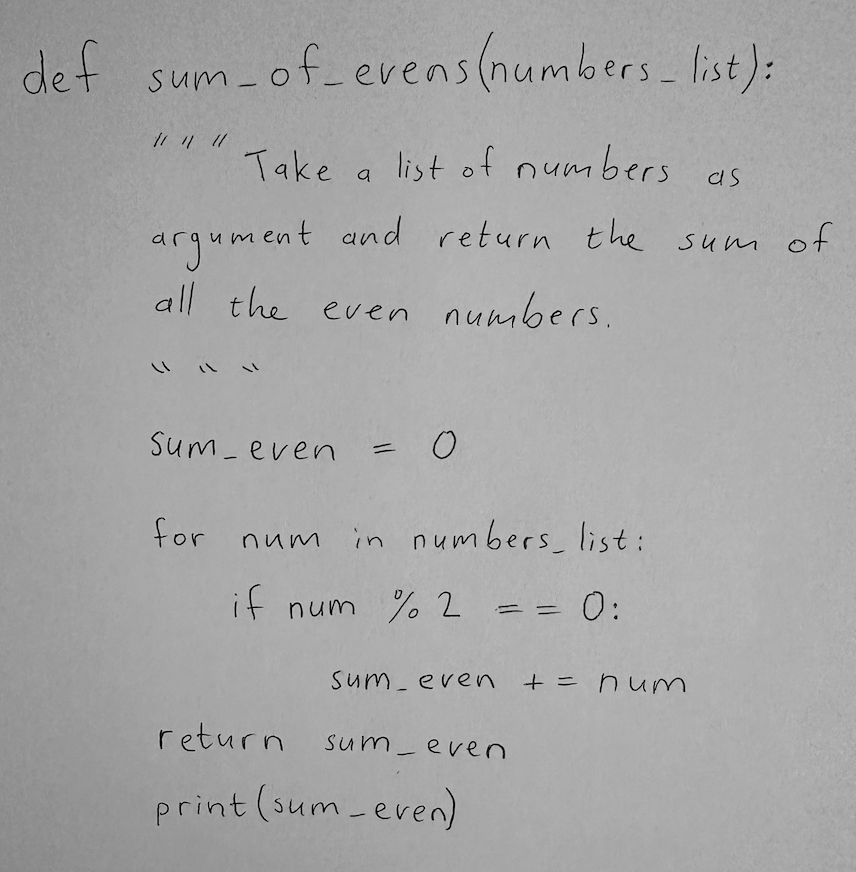 def sum_of_evens(numbers_list):
    """ Take a list of numbers as
    argument and return the sum of
    all the even numbers.
    """
    sum_even = 0
    for num in numbers_list:
        if num % 2 == 0:
            sum_even += num
    return sum_even
    print(sum_even)